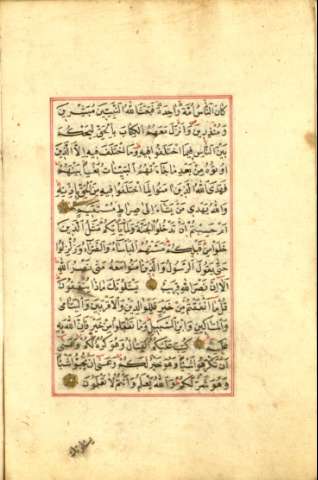 كَانَ النَّاسُ اُمَّةً وَاحِدَةً فَبَعَثَ اللهُ النَّبِيّنَ مُبَشِّرِينَ
وَمُنْذِرِينَ وَاَنْزَلَ مَعَهُمُ الْكِتَابَ بِالْحَقِّ لِيَحْكُمَ
بَيْنَ النَّاسِ فِيمَا اخْتَلَفُوا فِيهِ وَمَا اخْتَلَفَ فِيهِ اِلَّا الَّذِينَ
اُوتُوهُ مِنْ بَعْدِ مَا جَاءَتْهُمُ الْبَيِّنَاتُ بَغْيًا بَيْنَهُمْ
فَهَدَى اللهُ الَّذِينَ اٰمَنُوا لِمَا اخْتَلَفُوا فِيهِ مِنَ الْحَقِّ بِاِذْنِهِ
وَاللهُ يَهْدِي مَنْ يَشَاءُ اِلٰى صِرَاطٍ مُسْتَقِيمٍ
اَمْ حَسِبْتُمْ اَنْ تَدْخُلُوا الْجَنَّةَ وَلَمَّا يَاْتِكُمْ مَثَلُ الَّذِينَ
خَلَوْا مِنْ قَبْلِكُمْ مَسَّتْهُمُ الْبَاْسَاءُ وَالضَّرَّاءُ وَزُلْزِلُوا
حَتّٰى يَقُولَ الرَّسُولُ وَالَّذِينَ اٰمَنُوا مَعَهُ مَتٰى نَصْرُ اللهِ
اَلَا اِنَّ نَصْرَ اللهِ قَرِيبٌ يَسْئَلُونَكَ مَاذَا يُنْفِقُونَ
قُلْ مَا اَنْفَقْتُمْ مِنْ خَيْرٍ فَلِلْوَالِدَيْنِ وَالْاَقْرَبِينَ وَالْيَتَامٰى
وَالْمَسَاكِينِ وَابْنِ السَّبِيلِ وَمَا تَفْعَلُوا مِنْ خَيْرٍ فَاِنَّ اللهَ بِهِ
عَلِيمٌ كُتِبَ عَلَيْكُمُ الْقِتَالُ وَهُوَ كُرْهٌ لَكُمْ وَعَسٰى
اَنْ تَكْرَهُوا شَيْئًا وَهُوَ خَيْرٌ لَكُمْ وَعَسٰى اَنْ تُحِبُّوا شَيْئًا
وَهُوَ شَرٌّ لَكُمْ وَاللهُ يَعْلَمُ وَاَنْتُمْ لَا تَعْلَمُونَ